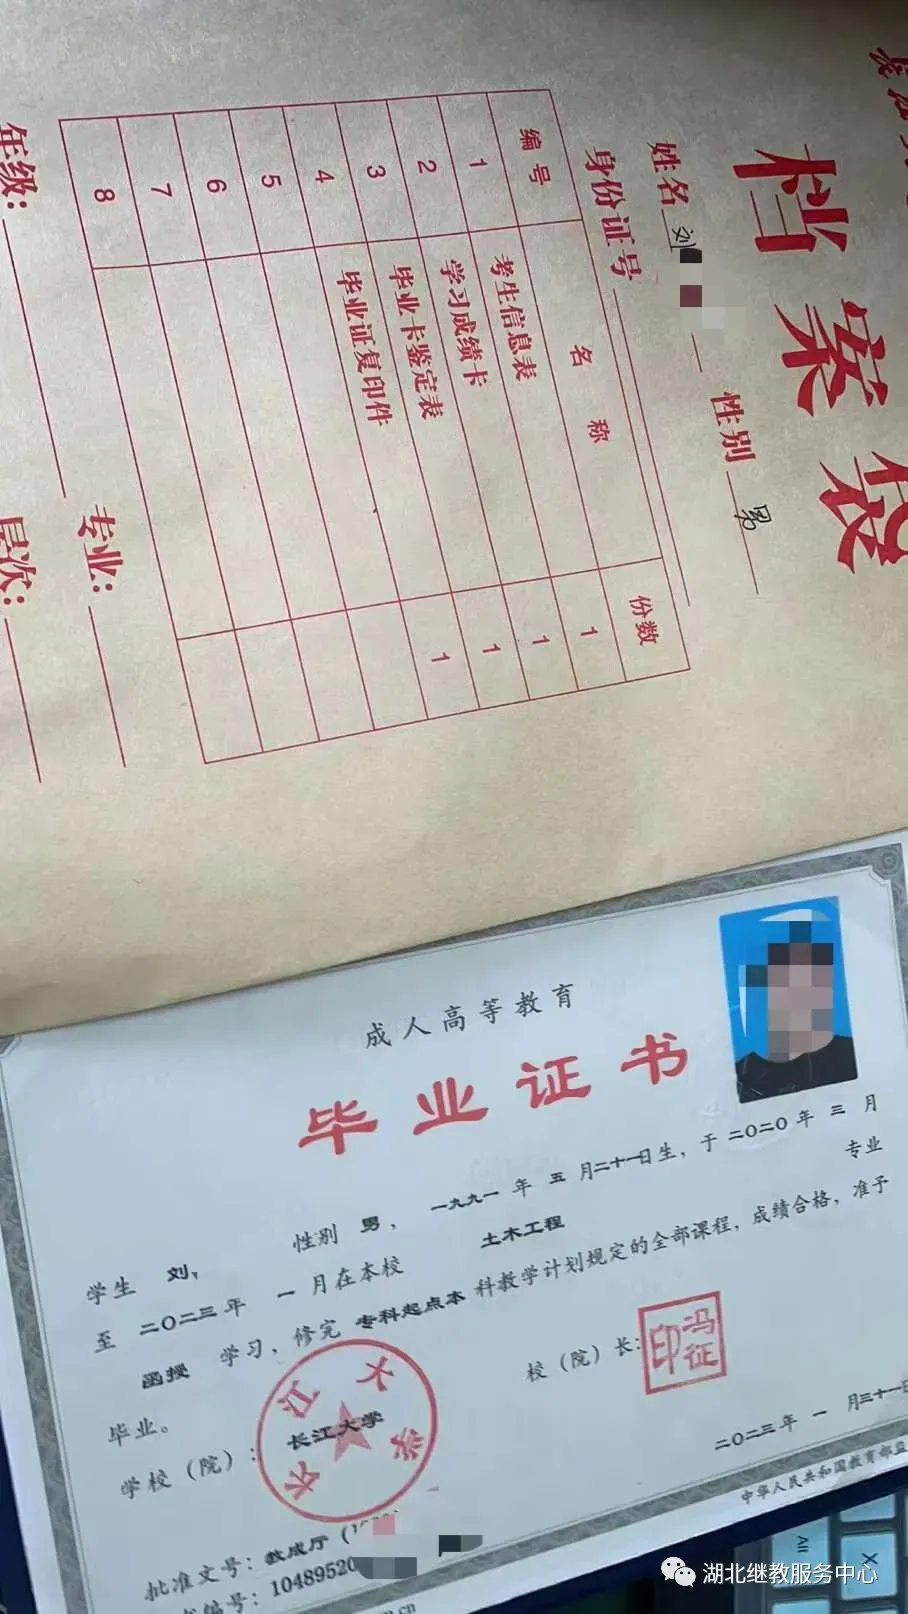 档案袋
姓名 刘 性别 男
身份证号
编号 名称 份数
1 考生信息表 1
2 学习成绩卡 1
3 毕业卡鉴定表 1
4 毕业证复印件 1
5
6
7
8
年级: 专业:
层次:
成人高等教育
毕业证书
学生 刘, 性别 男, 一九九一 年 五 月二十一日生, 于 二〇二〇 年 三 月
至 二〇二三 年 一 月在本校 土木工程 专业
函授 学习, 修完 专科起点本 科教学计划规定的全部课程, 成绩合格, 准予
毕业。
校（院）长: 冯征印
学校（院）: 长江大学
长江大学
二〇二三 年 一 月三十一日
中华人民共和国教育部监
批准文号: 教成厅（
编号: 10489520
湖北继教服务中心